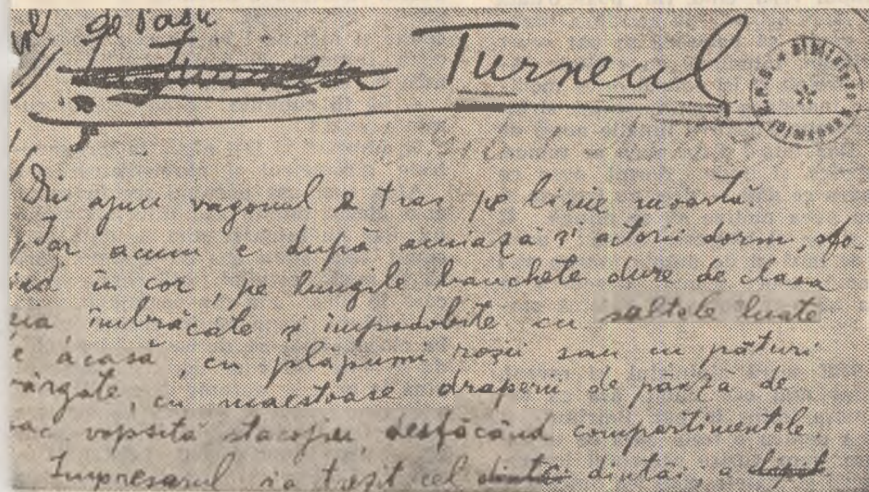 de
Turneul
Din ajun vagonul e tras pe linie moartă.
Iar acum e după amiază și actorii dorm, sfo-
ind în cor, pe lungile banchete dure de clasa
eia îmbrăcate și împodobite cu saltele luate
e acasă, cu plăpumi roșii sau cu pături
vârgate, cu maestoase draperii de pânză de
sac vopsită stacojiu, desfăcând compartimentele.
Impresarul s'a trezit cel dintâi dintâi; a